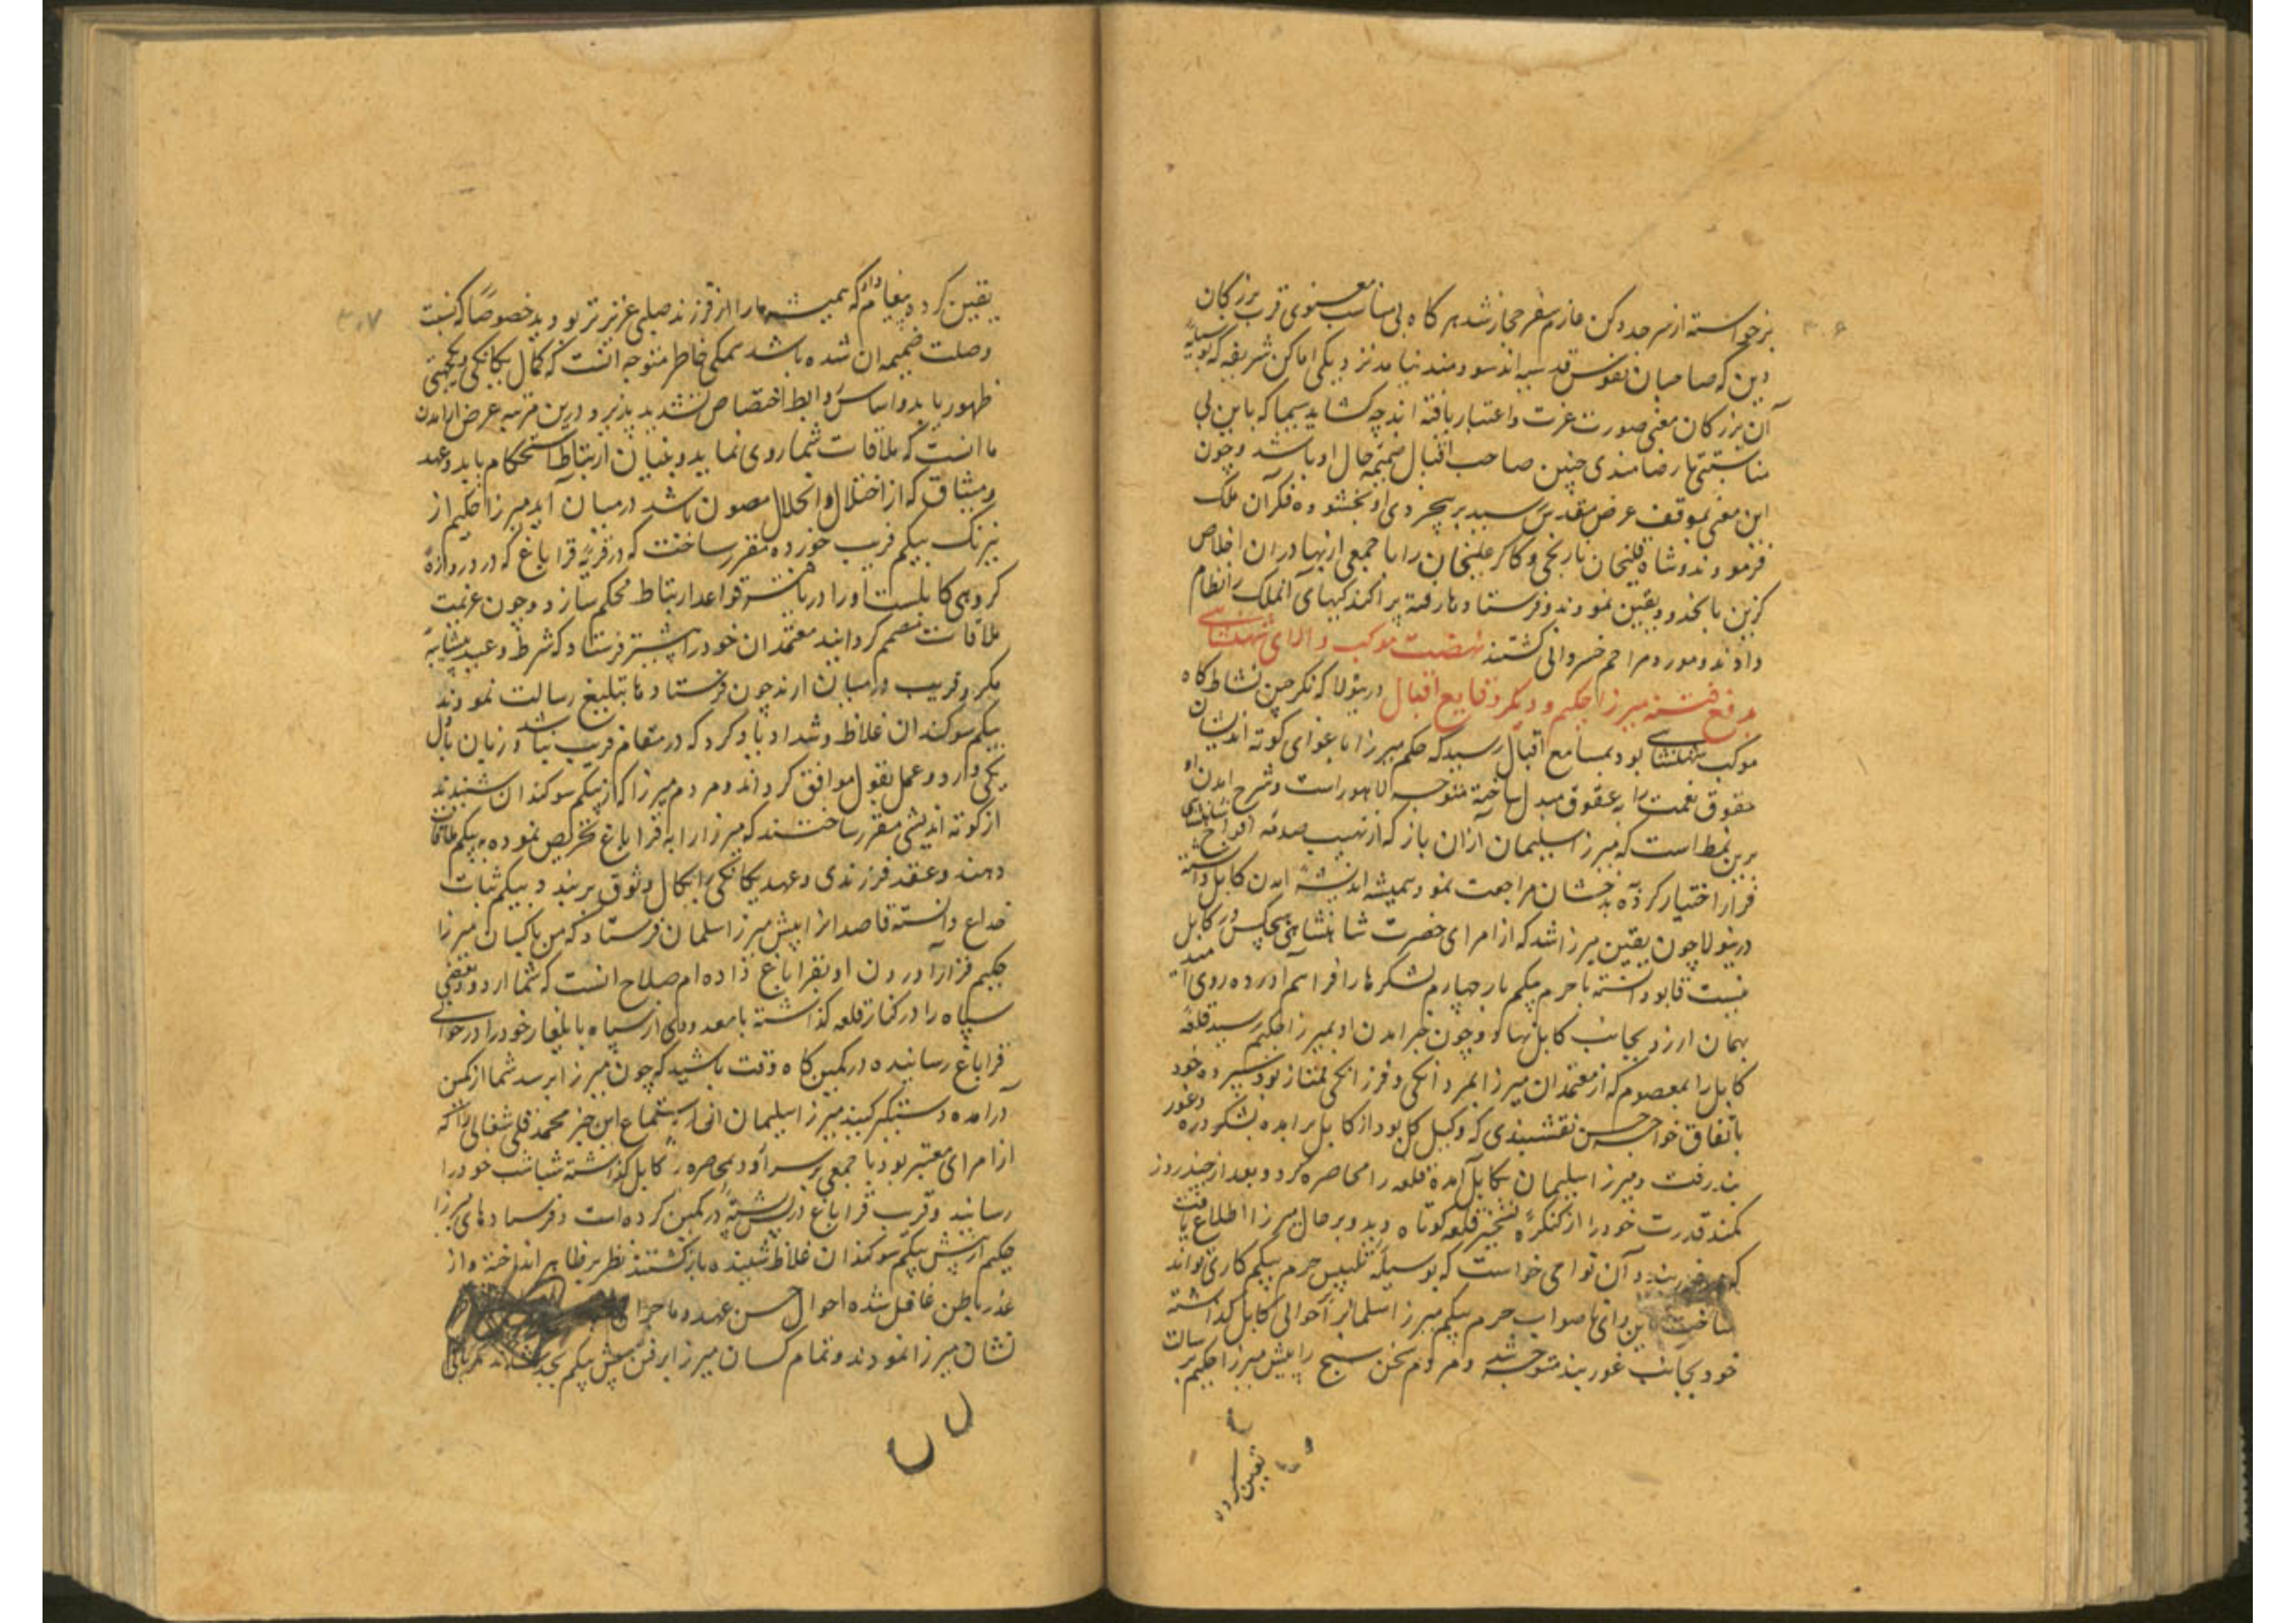 برخواسته از سرحد دکن عازم سفر حجاز شد هر گاه بی مناسب معنوی قرب بزرگان
دین که صاحبان نفوس قدسیه اند سودمند نیامد نزدیکی اماکن شریفه که بوسیلهٔ
آن بزرگان معنی صورت عزت و اعتبار یافته اند چه گشاید سیما که باین بی
مناسبتیها رضامندی چنین صاحب اقبال ضمیمه حال او باشد و چون
این معنی بموقف عرض مقدس رسید بر بیخردی او بخشوده فکر آن ملک
فرمودند و شاه قلیخان نارنجی و کاکر علیخان را با جمعی از بهادران اخلاص
گزین بانجدود تعین نمودند و فرستادها رفته پراکندکیهای آنملک را نظام
دادند و مورد مراحم خسروانی گشتند نهضت موکب والای شهنشاهی
بدفع فتنه میرزا حکیم و دیگر وقایع اقبال درینولا که نگرچین نشاط گاه
موکب شهنشاهی بود بمسامع اقبال رسید که حکیم میرزا باغوای کوته اندیشان
حقوق نعمت را به عقوق مبدل ساخته متوجه لاهور است و شرح آمدن او
برین نمط است که میرزا سلیمان از آن باز که از نهیب صدمه افواج شاهنشاهی
فرار اختیار کرده به بدخشان مراجعت نمود همیشه اندیشه آمدن کابل داشته
درینولا چون یقین میرزا شد که از امرای حضرت شاهنشاهی هیچکس در کابل
نیست قابو دانسته با حرم بیگم بار چهارم لشکرها را فراهم آورده روی امید
بهمان آرزو بجانب کابل نهاد و چون خبر آمدن او بمیرزا حکیم رسید قلعه
کابل را بمعصوم که از معتمدان میرزا بمردانگی و فرزانگی ممتاز بود سپرده خود
باتفاق خواجه حسن نقشبندی که وکیل کل بود از کابل برآمده بشکردره و غور
بند رفت و میرزا سلیمان بکابل آمده قلعه را محاصره کرد و بعد از چند روز
کمند قدرت خود را از کنگرهٔ تسخیر قلعه کوتاه دید و بر حال میرزا اطلاع یافت
که در غوربند و آن نواحی خواست که بوسیله تلبیس حرم بیگم کاری تواند
ساخت باین رای ناصواب حرم بیگم میرزا سلیمان را حوالی کابل گذاشته
خود بجانب غوربند متوجه شد و مردم سخن سنج را پیش میرزا حکیم برسالت
تعین کرده
یقین کرده پیغام داد که همیشه ما را از فرزند صلبی عزیزتر بودید خصوصاً که نسبت
وصلت ضمیمه آن شده باشد همگی خاطر متوجه آنست که کمال یگانگی و یکجهتی
ظهور یابد و اساس روابط اختصاص تشدید پذیرد و درین مرتبه غرض از آمدن
ما آنست که ملاقات شما روی نماید و بنیان ارتباط استحکام یابد و عهد
و میثاق که از اختلال و انحلال مصون باشد درمیان آید میرزا حکیم از
نیرنگ بیگم فریب خورده مقرر ساخت که در قریهٔ قراباغ که در دوازده
کروهی کابلست او را دریافته قواعد ارتباط محکم سازد و چون عزیمت
ملاقات مصمم گردانید معتمدان خود را پیشتر فرستاد که شرط و عهد بیشایبهٔ
مکر و فریب درمیان آرند چون فرستادها تبلیغ رسالت نمودند
بیگم سوگندان غلاظ و شداد یاد کرد که در مقام فریب نباشد و زبان با دل
یکی دارد و عمل بقول موافق گرداند و مردم میرزا که از بیگم سوگندان شنیدند
از کوته اندیشی مقرر ساختند که میرزا را به قراباغ تحریص نموده به بیگم ملاقات
دهند و عقد فرزندی و عهد یگانگی را بکمال وثوق بربند و بیگم ثبات
خداع دانسته قاصدان را پیش میرزا سلیمان فرستاد که من با کسان میرزا
حکیم قرار آوردن او بقراباغ داده ام صلاح آنست که شما اردو و بعضی
سپاه را در کنار قلعه گذاشته با معدودی از سپاه بایلغار خود را در حوالی
قراباغ رسانیده در کمین گاه وقت باشید که چون میرزا برسد شما از کمین
درآمده دستگیر کنید میرزا سلیمان از استماع این خبر محمد قلی شغالی را که
از امرای معتبر بود با جمعی بر سر آورد محاصره کابل گذاشته شباشب خود را
رسانید و قرب قراباغ در پس پشتهٔ در کمین کرده است و فرستادهای میرزا
حکیم از پیش بیگم سوگندان غلاظ شنیده بازگشتند نظر بر ظاهر انداخته و از
غدر باطن غافل شده احوال حسن عهد و ماجرا
نشان میرزا نمودند و تمام کسان میرزا برفتن پیش بیگم